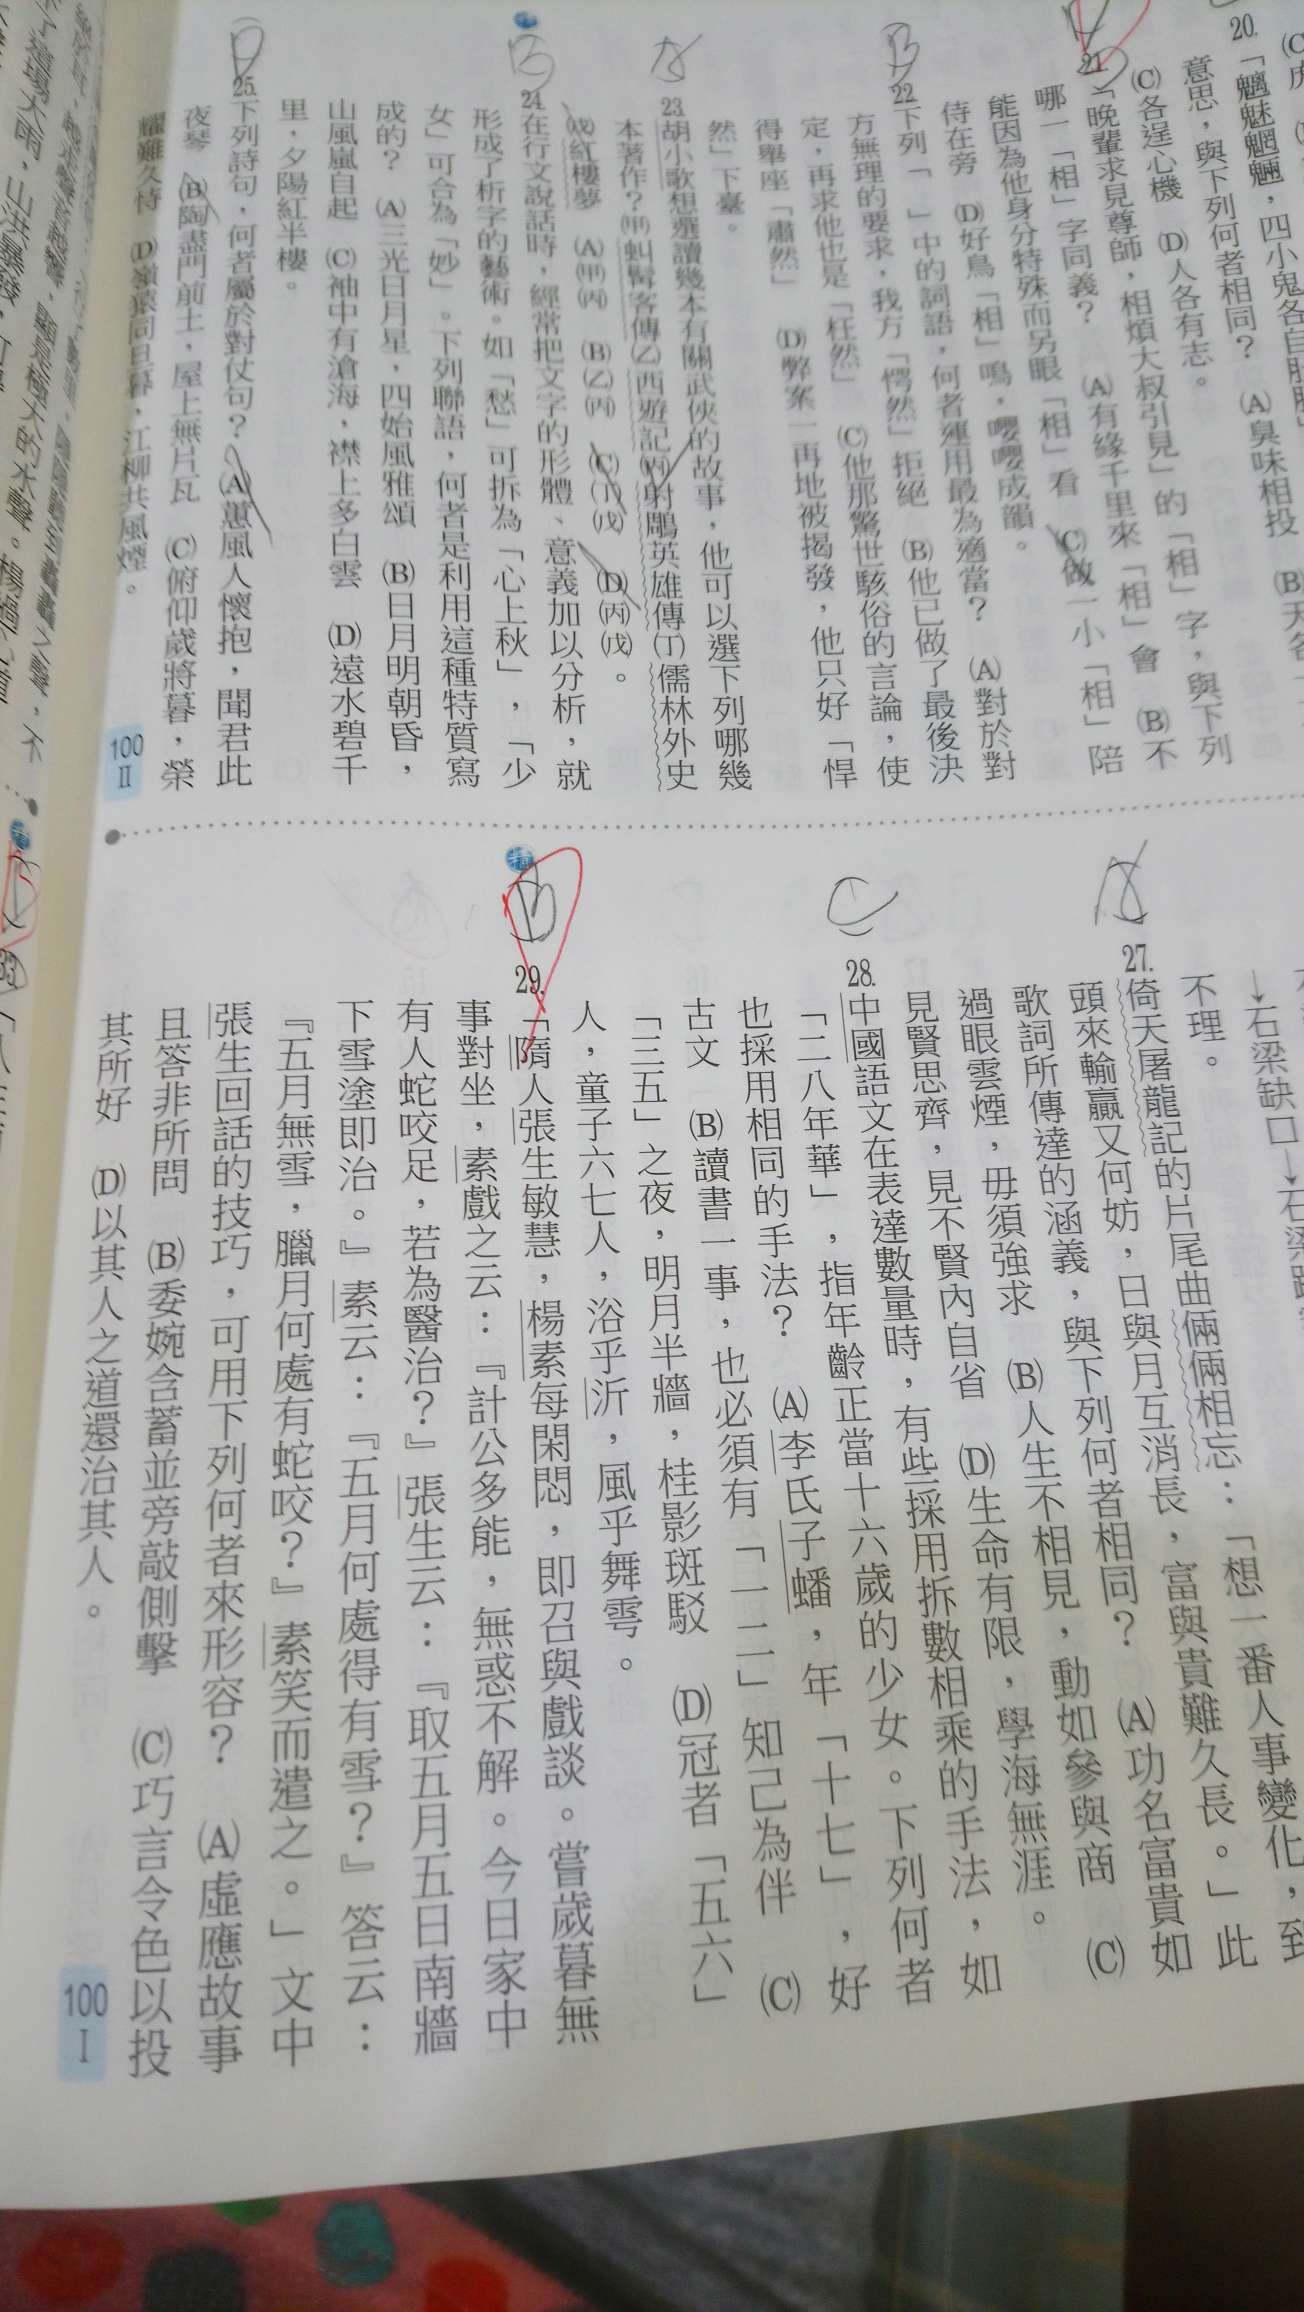 20.「魑魅魍魎，四小鬼各自肚腸」
意思，與下列何者相同？ (A)臭味相投
(C)各逞心機 (D)人各有志。
21.「晚輩求見尊師，相煩大叔引見」的「相」字，與下列
哪一「相」字同義？ (A)有緣千里來「相」會 (B)不
能因為他身分特殊而另眼「相」看 (C)做一小「相」陪
侍在旁 (D)好鳥「相」鳴，嚶嚶成韻。
22.下列「 」中的詞語，何者運用最為適當？ (A)對於對
方無理的要求，我方「愕然」拒絕 (B)他已做了最後決
定，再求他也是「枉然」 (C)他那驚世駭俗的言論，使
得舉座「肅然」 (D)弊案一再地被揭發，他只好「悍
然」下臺。
23.胡小歌想選讀幾本有關武俠的故事，他可以選下列哪幾
本著作？㈙虯髯客傳㈚西遊記㈛射鵰英雄傳㈜儒林外史
㈝紅樓夢 (A)㈙㈛ (B)㈚㈛ (C)㈜㈝ (D)㈛㈝。
24.在行文說話時，經常把文字的形體、意義加以分析，就
形成了析字的藝術。如「愁」可拆為「心上秋」，「少
女」可合為「妙」。下列聯語，何者是利用這種特質寫
成的？ (A)三光日月星，四始風雅頌 (B)日月明朝昏，
山風嵐自起 (C)袖中有滄海，襟上多白雲 (D)遠水碧千
里，夕陽紅半樓。
25.下列詩句，何者屬於對仗句？ (A)蕙風人懷抱，聞君此
夜琴 (B)陶盡門前土，屋上無片瓦 (C)俯仰歲將暮，榮
耀難久恃 (D)嶺猿同旦暮，江柳共風煙。
100
II
↓石梁缺口↓石梁
不理。
27.倚天屠龍記的片尾曲倆倆相忘：「想一番人事變化，到
頭來輸贏又何妨，日與月互消長，富與貴難久長。」此
歌詞所傳達的涵義，與下列何者相同？ (A)功名富貴如
過眼雲煙，毋須強求 (B)人生不相見，動如參與商 (C)
見賢思齊，見不賢內自省 (D)生命有限，學海無涯。
28.中國語文在表達數量時，有些採用拆數相乘的手法，如
「二八年華」，指年齡正當十六歲的少女。下列何者
也採用相同的手法？ (A)李氏子蟠，年「十七」，好
古文 (B)讀書一事，也必須有「一二」知己為伴 (C)
「三五」之夜，明月半牆，桂影斑駁 (D)冠者「五六」
人，童子六七人，浴乎沂，風乎舞雩。
29.「隋人張生敏慧，楊素每閑悶，即召與戲談。嘗歲暮無
事對坐，素戲之云：『計公多能，無惑不解。今日家中
有人蛇咬足，若為醫治？』張生云：『取五月五日南牆
下雪塗即治。』素云：『五月何處得有雪？』答云：
『五月無雪，臘月何處有蛇咬？』素笑而遣之。」文中
張生回話的技巧，可用下列何者來形容？ (A)虛應故事
且答非所問 (B)委婉含蓄並旁敲側擊 (C)巧言令色以投
其所好 (D)以其人之道還治其人。
100
I